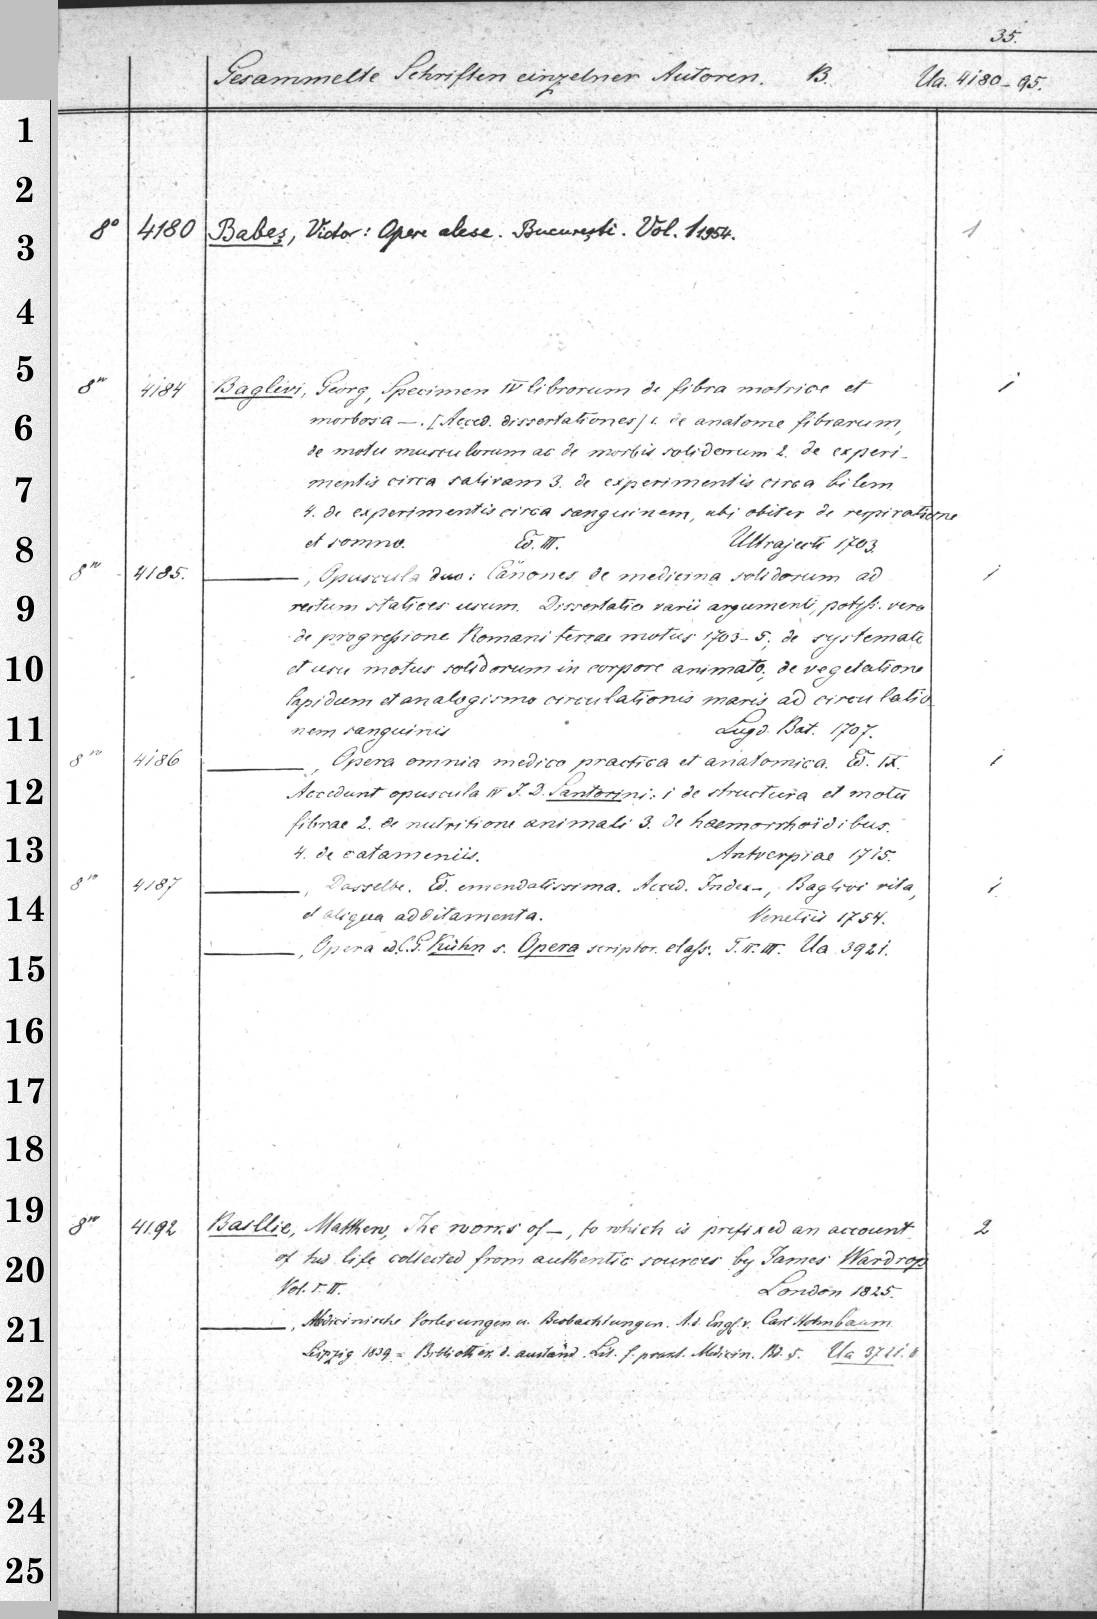 35.
Gesammelte Schriften einzelner Autoren. B. Ua. 4180-95.
1
2
3
8° 4180 Babeş, Victor: Opere alese. Bucureşti. Vol. 1 1954. 1
4
5
8vo 4184 Baglivi, Georg, Specimen IV librorum de fibra motrice et 1
6
morbosa —. [Acced. dissertationes] 1. de anatome fibrarum,
de motu musculorum ac de morbis solidorum 2. de experi-
7
mentis circa salivam 3. de experimentis circa bilem
4. de experimentis circa sanguinem, ubi obiter de respiratione
8
et somno. Ed. III. Ultrajecti 1703.
8vo 4185. ———, Opuscula duo: Canones de medicina solidorum ad 1
9
rectum statices usum. Dissertatio varii argumenti, potiss. vero
de progressione Romani terrae motus 1703-5; de systemate
10
et usu motus solidorum in corpore animato; de vegetatione
lapidum et analogismo circulationis maris ad circulatio
11
nem sanguinis Lugd. Bat. 1707.
8vo 4186 ———, Opera omnia medico practica et anatomica. Ed. IX. 1
12
Accedunt opuscula IV J. D. Santorini: 1 de structura et motu
fibrae 2. de nutritione animali 3. de haemorrhoidibus.
13
4. de catameniis. Antverpiae 1715.
8vo 4187 ———, Dasselbe. Ed. emendatissima. Acced. Index —, Baglivi vita, 1
14
et aliqua additamenta. Venetiis 1754.
———, Opera ed. C. G. Kühn s. Opera scriptor. class. T. II. III. Ua 3921.
15
16
17
18
19
8vo 4192 Baillie, Matthew, The works of —, to which is prefixed an account 2
20
of his life collected from authentic sources by James Wardrop
Vol. I. II. London 1825.
21
———, Medicinische Vorlesungen u. Beobachtungen. A. d. Engl. v. Carl Hohnbaum
Leipzig 1839 = Bibliothek d. ausländ. Lit. f. prakt. Medicin. Bd. 5. Ua 3721.
22
23
24
25